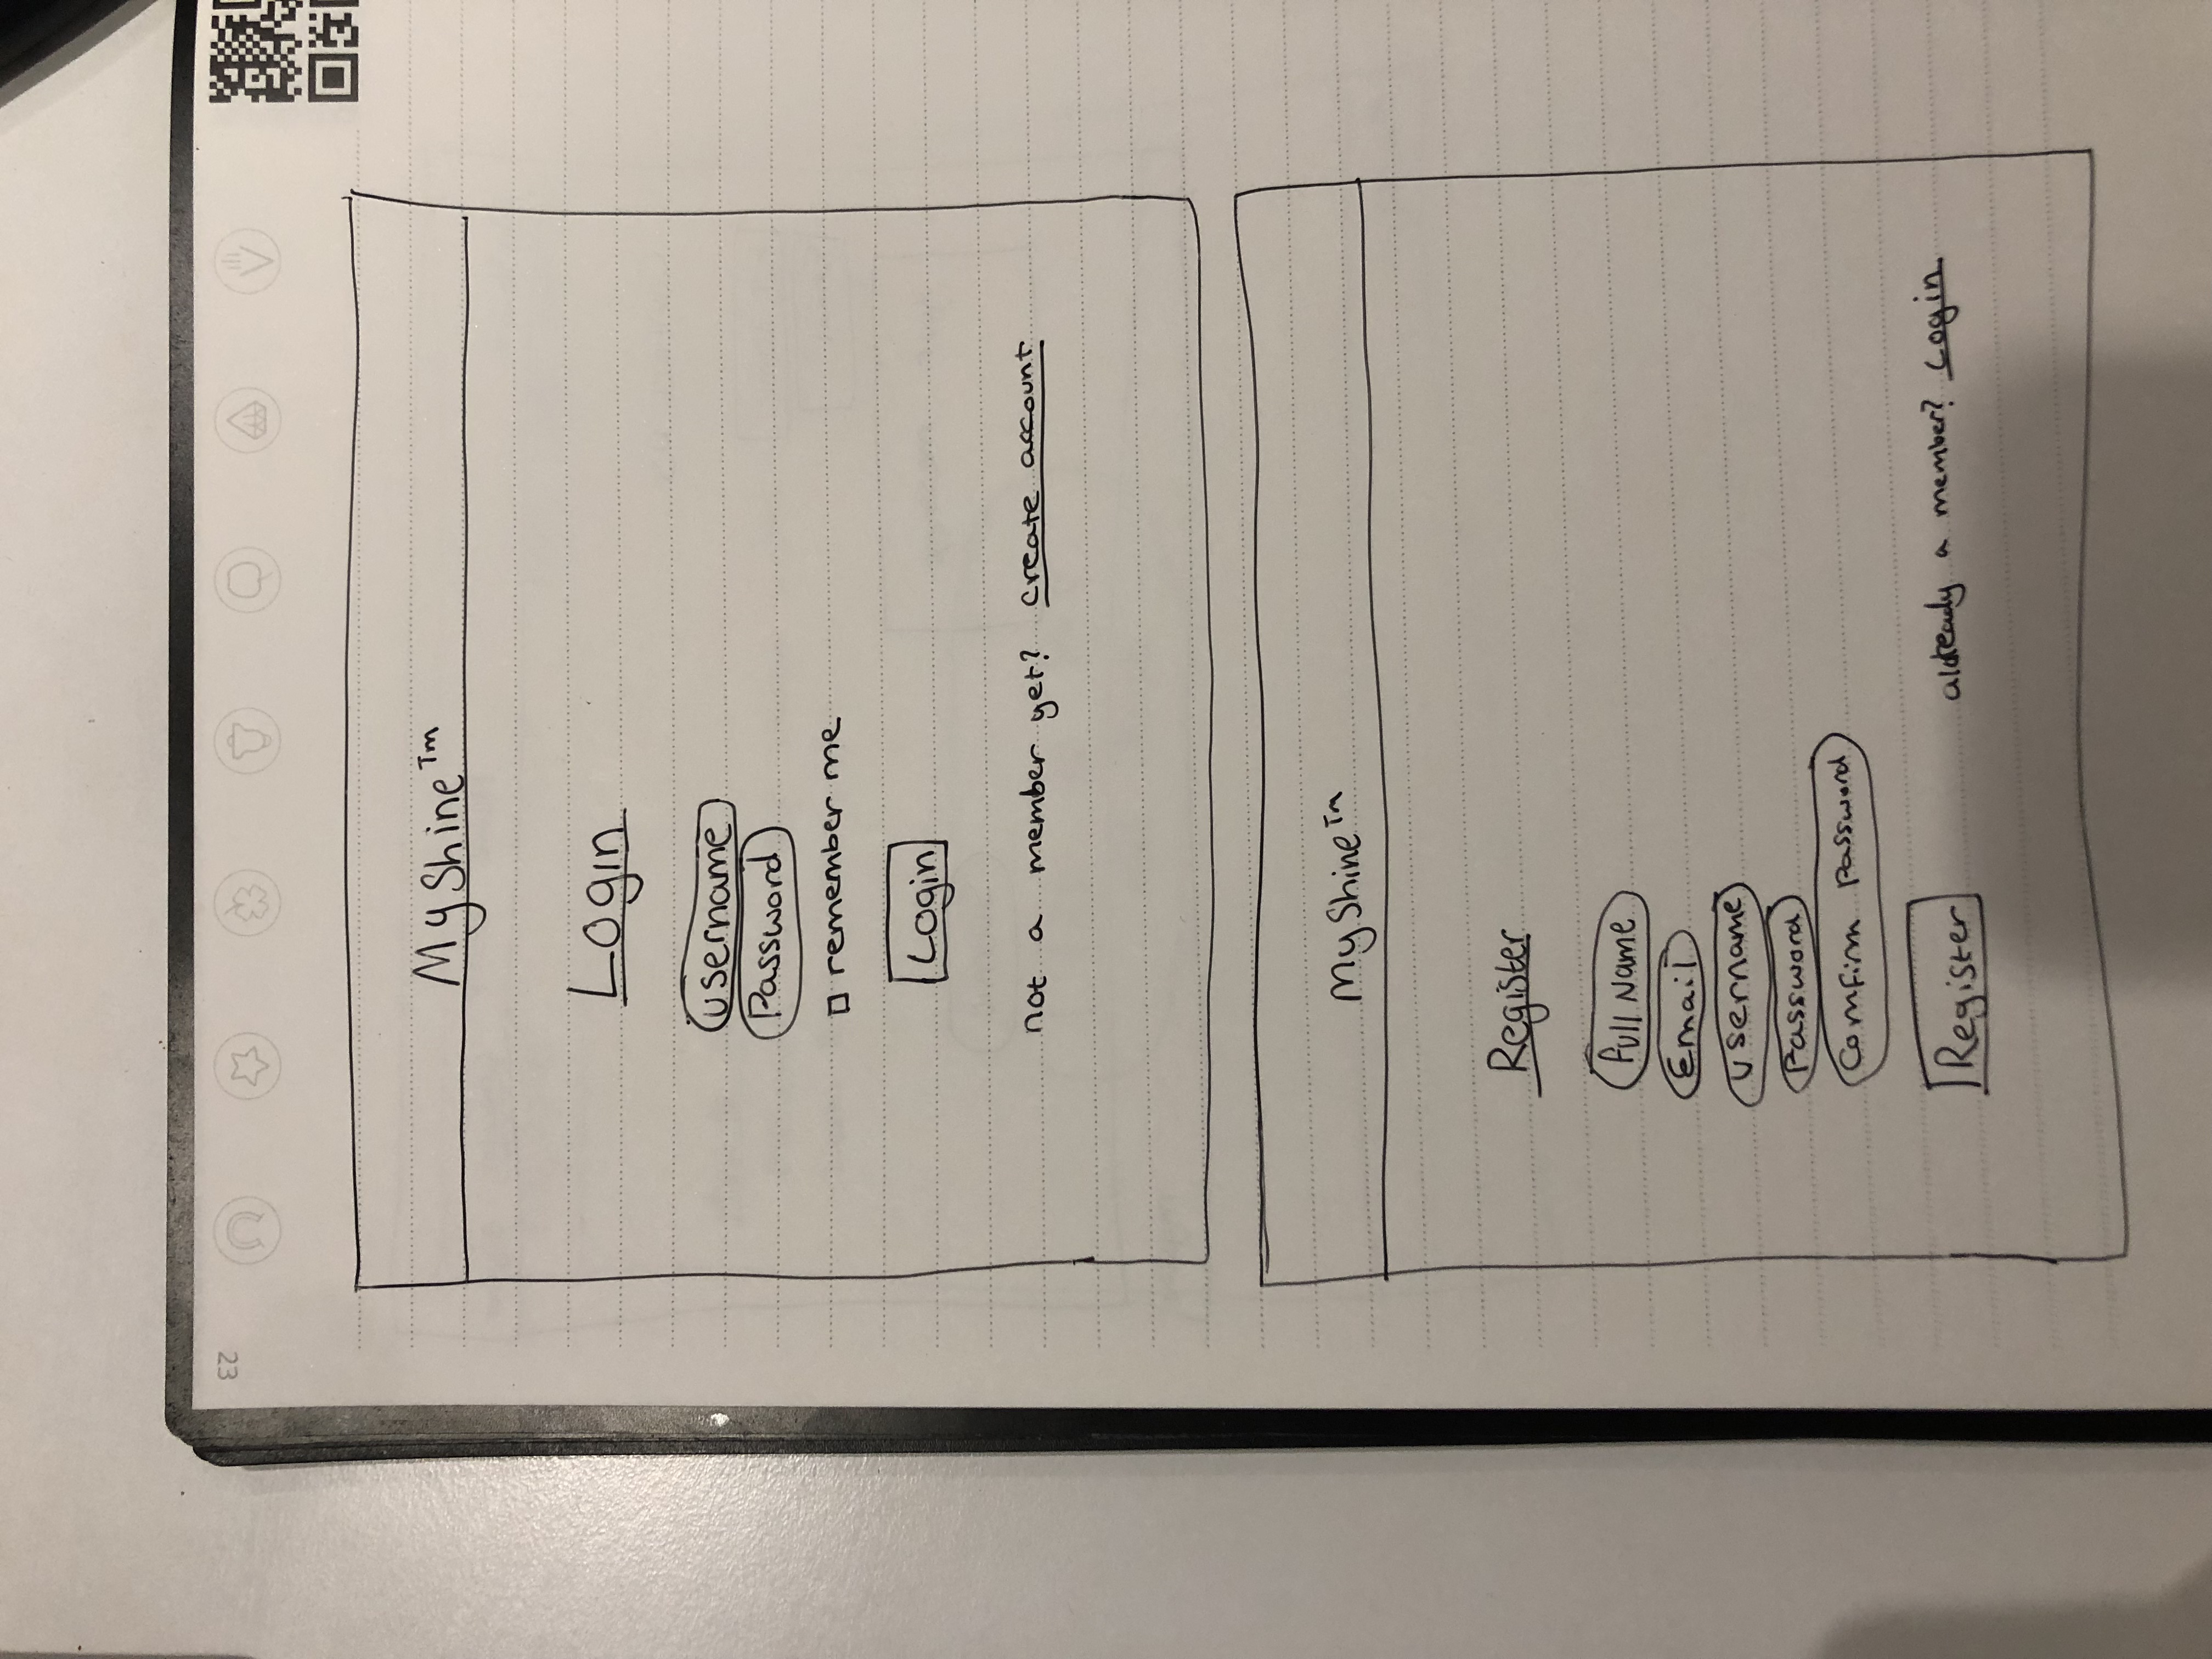 23
MyShine™
Login
username
Password
remember me
Login
not a member yet? create account
MyShine™
Register
Full Name
Email
username
Password
Comfirm Password
Register
already a member? Login